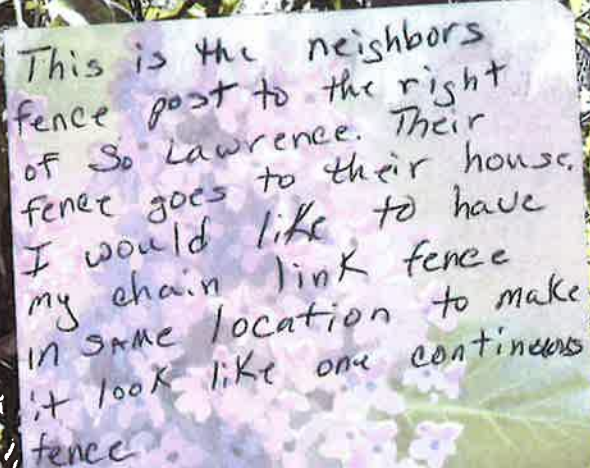 This is the neighbors
fence post to the right
of So Lawrence. Their
fence goes to their house.
I would like to have
my chain link fence
in same location to make
it look like one continuous
fence